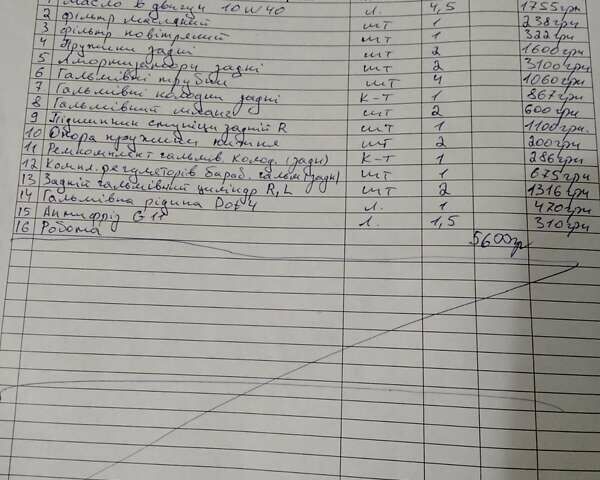 1 Масло в двигун 10W40 л. 4,5 1755грн
2 Фільтр масляний шт 1 238грн
3 фільтр повітряний шт 1 322грн
4 Пружини задні шт 2 1600грн
5 Амортизатори задні шт 2 3100грн
6 Гальмівні трубки шт 4 1060грн
7 Гальмівні колодки задні к-т 1 867грн
8 Гальмівний шт 2 600грн
9 Підшипник ступиці задній R шт 1 1100грн.
10 Опора пружини нижня шт 2 200грн
11 Ремкомплект гальмів. колод. (задн) к-т 1 286грн
12 Компл. регуляторів бараб. гальм (задн) шт 1 675грн
13 Задній гальмівний циліндр R, L шт 2 1316грн
14 Гальмівна рідина Dot 4 л. 1 470грн
15 Антифріз G11 л. 1,5 310грн
16 Робота 5600гр